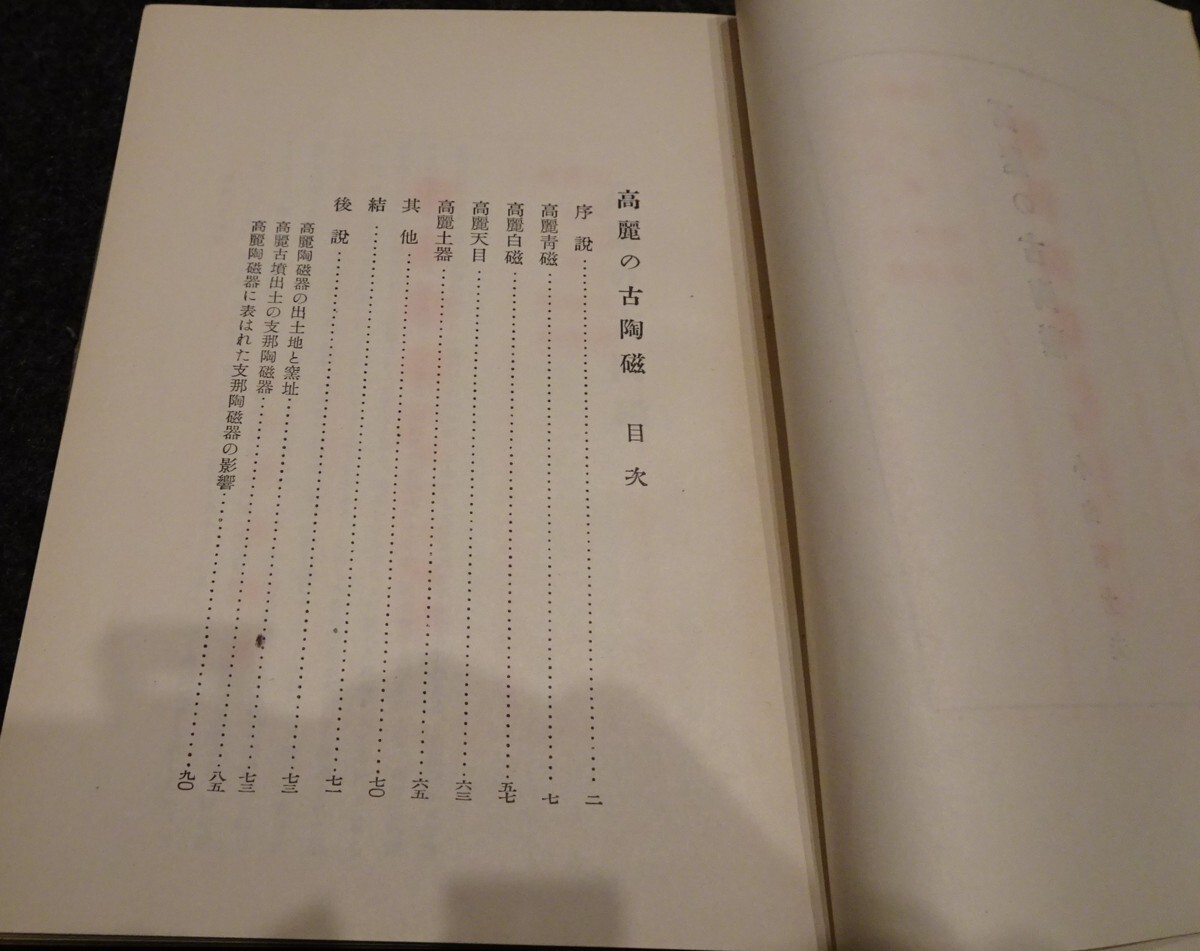 高麗の古陶磁　目次
序說…………二
高麗靑磁…………七
高麗白磁…………五七
高麗天目…………六三
高麗土器…………六五
其他…………七〇
結…………七一
後說…………七三
高麗陶磁器の出土地と窯址…………七三
高麗古墳出土の支那陶磁器…………八五
高麗陶磁器に表はれた支那陶磁器の影響…………九〇